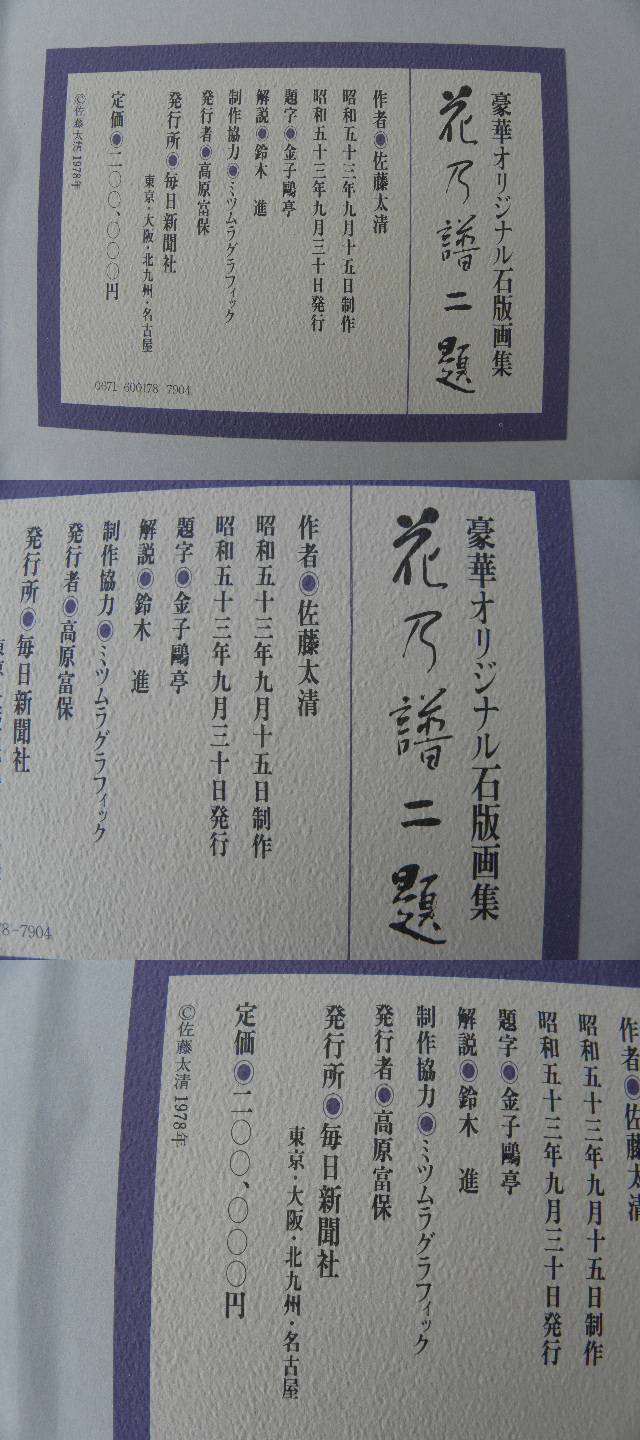 豪華オリジナル石版画集
花乃譜二題
作者◉佐藤太清
昭和五十三年九月十五日制作
昭和五十三年九月三十日発行
題字◉金子鷗亭
解説◉鈴木 進
制作協力◉ミツムラグラフィック
発行者◉高原富保
発行所◉毎日新聞社
東京・大阪・北九州・名古屋
定価◉二〇〇、〇〇〇円
©佐藤太清 1978年
0071-600178-7904
豪華オリジナル石版画集
花乃譜二題
作者◉佐藤太清
昭和五十三年九月十五日制作
昭和五十三年九月三十日発行
題字◉金子鷗亭
解説◉鈴木 進
制作協力◉ミツムラグラフィック
発行者◉高原富保
発行所◉毎日新聞社
78-7904
作者◉佐藤太清
昭和五十三年九月十五日制作
昭和五十三年九月三十日発行
題字◉金子鷗亭
解説◉鈴木 進
制作協力◉ミツムラグラフィック
発行者◉高原富保
発行所◉毎日新聞社
東京・大阪・北九州・名古屋
定価◉二〇〇、〇〇〇円
©佐藤太清 1978年